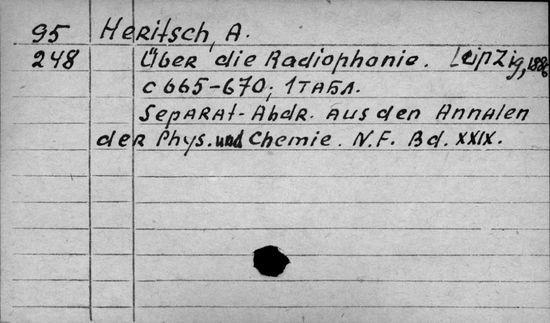 95 Heritsch, A.
248 Über die Radiophonie. Leipzig, 1886
с 665-670; 1 табл.
Separat-Abdr. aus den Annalen
der Phys. und Chemie. N.F. Bd. XXIX.